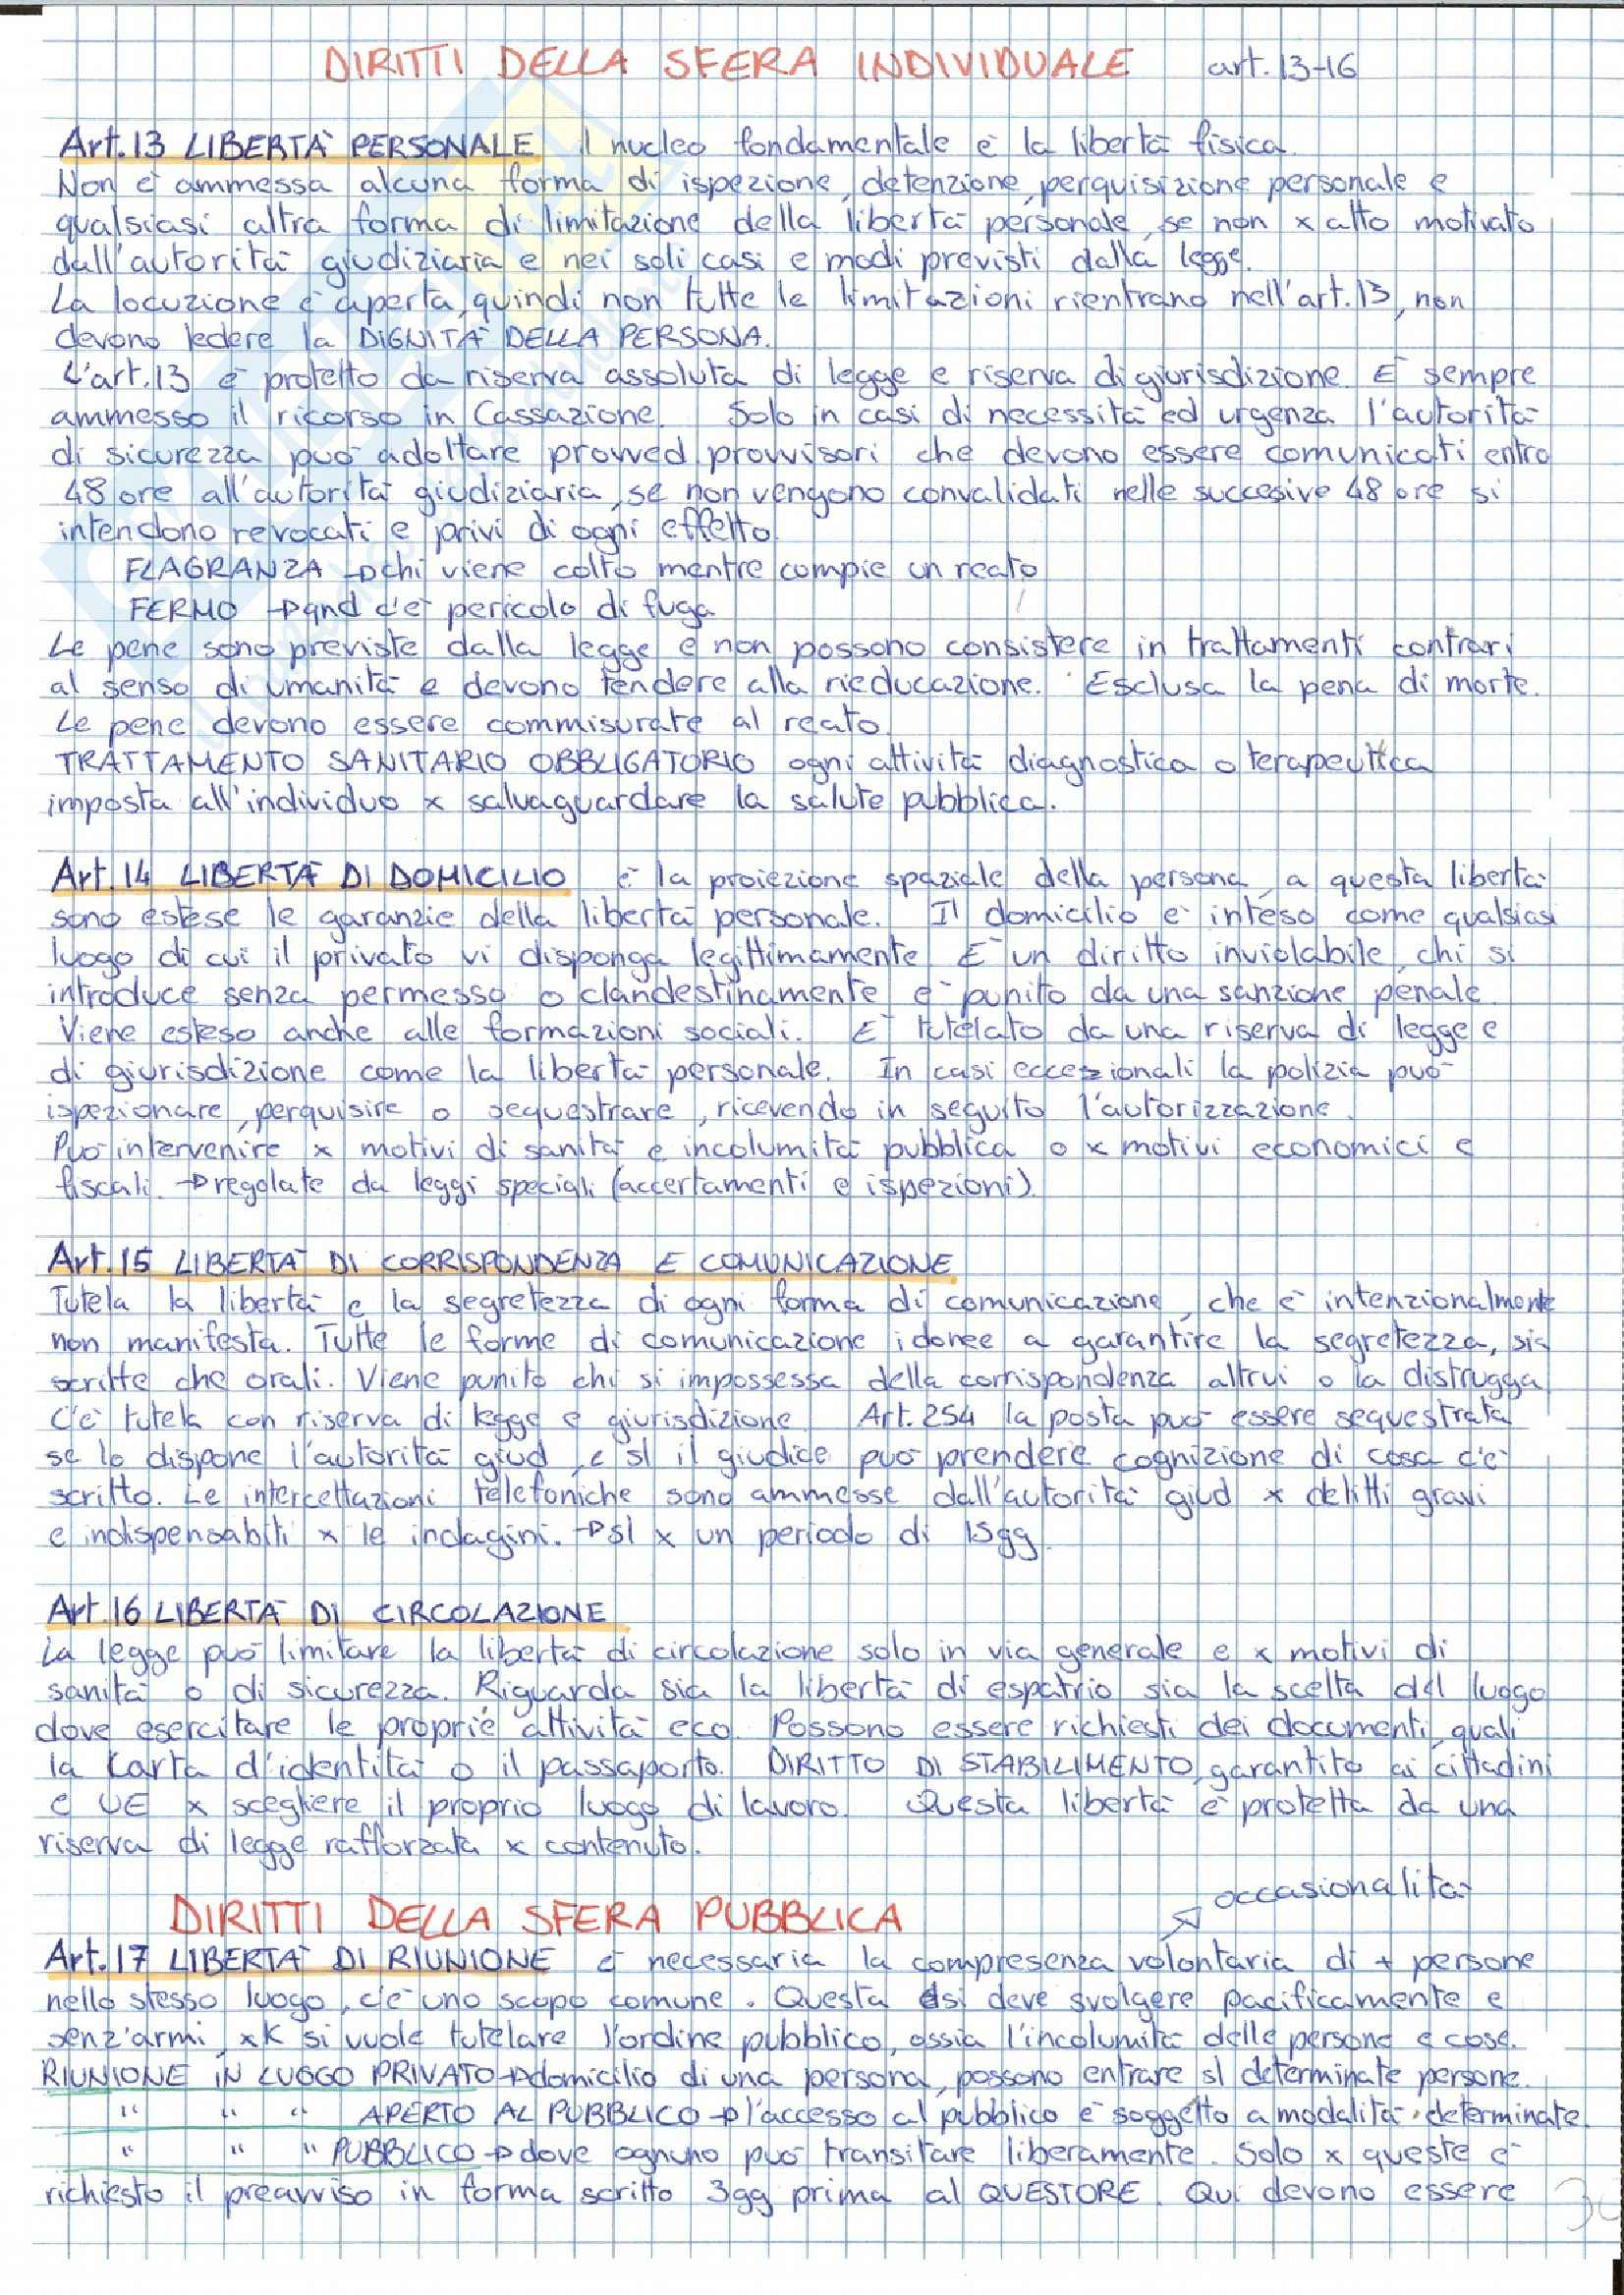 DIRITTI DELLA SFERA INDIVIDUALE art. 13-16
Art. 13 LIBERTÀ PERSONALE il nucleo fondamentale è la libertà fisica.
Non è ammessa alcuna forma di ispezione, detenzione, perquisizione personale e
qualsiasi altra forma di limitazione della libertà personale, se non x atto motivato
dall'autorità giudiziaria e nei soli casi e modi previsti dalla legge.
La locuzione è aperta, quindi non tutte le limitazioni rientrano nell'art. 13, non
devono ledere la DIGNITÀ DELLA PERSONA.
L'art. 13 è protetto da riserva assoluta di legge e riserva di giurisdizione. È sempre
ammesso il ricorso in Cassazione. Solo in casi di necessità ed urgenza l'autorità
di sicurezza può adottare provved. provvisori che devono essere comunicati entro
48 ore all'autorità giudiziaria, se non vengono convalidati nelle succesive 48 ore si
intendono revocati e privi di ogni effetto.
FLAGRANZA → chi viene colto mentre compie un reato
FERMO → qnd c'è pericolo di fuga
Le pene sono previste dalla legge e non possono consistere in trattamenti contrari
al senso di umanità e devono tendere alla rieducazione. Esclusa la pena di morte.
Le pene devono essere commisurate al reato.
TRATTAMENTO SANITARIO OBBLIGATORIO ogni attività diagnostica o terapeutica
imposta all'individuo x salvaguardare la salute pubblica.
Art. 14 LIBERTÀ DI DOMICILIO è la proiezione spaziale della persona, a questa libertà
sono estese le garanzie della libertà personale. Il domicilio è inteso come qualsiasi
luogo di cui il privato vi disponga legittimamente. È un diritto inviolabile, chi si
introduce senza permesso o clandestinamente è punito da una sanzione penale.
Viene esteso anche alle formazioni sociali. È tutelato da una riserva di legge e
di giurisdizione come la libertà personale. In casi eccezionali la polizia può
ispezionare, perquisire o sequestrare, ricevendo in seguito l'autorizzazione.
Può intervenire x motivi di sanità e incolumità pubblica o x motivi economici e
fiscali. → regolate da leggi speciali (accertamenti e ispezioni).
Art. 15 LIBERTÀ DI CORRISPONDENZA E COMUNICAZIONE
Tutela la libertà e la segretezza di ogni forma di comunicazione, che è intenzionalmente
non manifesta. Tutte le forme di comunicazione idonee a garantire la segretezza, sia
scritte che orali. Viene punito chi si impossessa della corrispondenza altrui o la distrugga.
C'è tutela con riserva di legge e giurisdizione. Art. 254 la posta può essere sequestrata
se lo dispone l'autorità giud, e sl il giudice può prendere cognizione di cosa c'è
scritto. Le intercettazioni telefoniche sono ammesse dall'autorità giud x delitti gravi
e indispensabili x le indagini. → sl x un periodo di 15gg.
Art. 16 LIBERTÀ DI CIRCOLAZIONE
La legge può limitare la libertà di circolazione solo in via generale e x motivi di
sanità o di sicurezza. Riguarda sia la libertà di espatrio sia la scelta del luogo
dove esercitare le proprie attività eco. Possono essere richiesti dei documenti, quali
la Karta d'identità o il passaporto. DIRITTO DI STABILIMENTO, garantito ai cittadini
e UE x scegliere il proprio luogo di lavoro. Questa libertà è protetta da una
riserva di legge rafforzata x contenuto.
occasionalità
DIRITTI DELLA SFERA PUBBLICA
Art. 17 LIBERTÀ DI RIUNIONE è necessaria la compresenza volontaria di + persone
nello stesso luogo, c'è uno scopo comune. Questa si deve svolgere pacificamente e
senz'armi, xK si vuole tutelare l'ordine pubblico, ossia l'incolumità delle persone e cose.
RIUNIONE IN LUOGO PRIVATO → domicilio di una persona, possono entrare sl determinate persone.
" " " APERTO AL PUBBLICO → l'accesso al pubblico è soggetto a modalità determinate.
" " " PUBBLICO → dove ognuno può transitare liberamente. Solo x queste è
richiesto il preavviso in forma scritto 3gg prima al QUESTORE. Qui devono essere